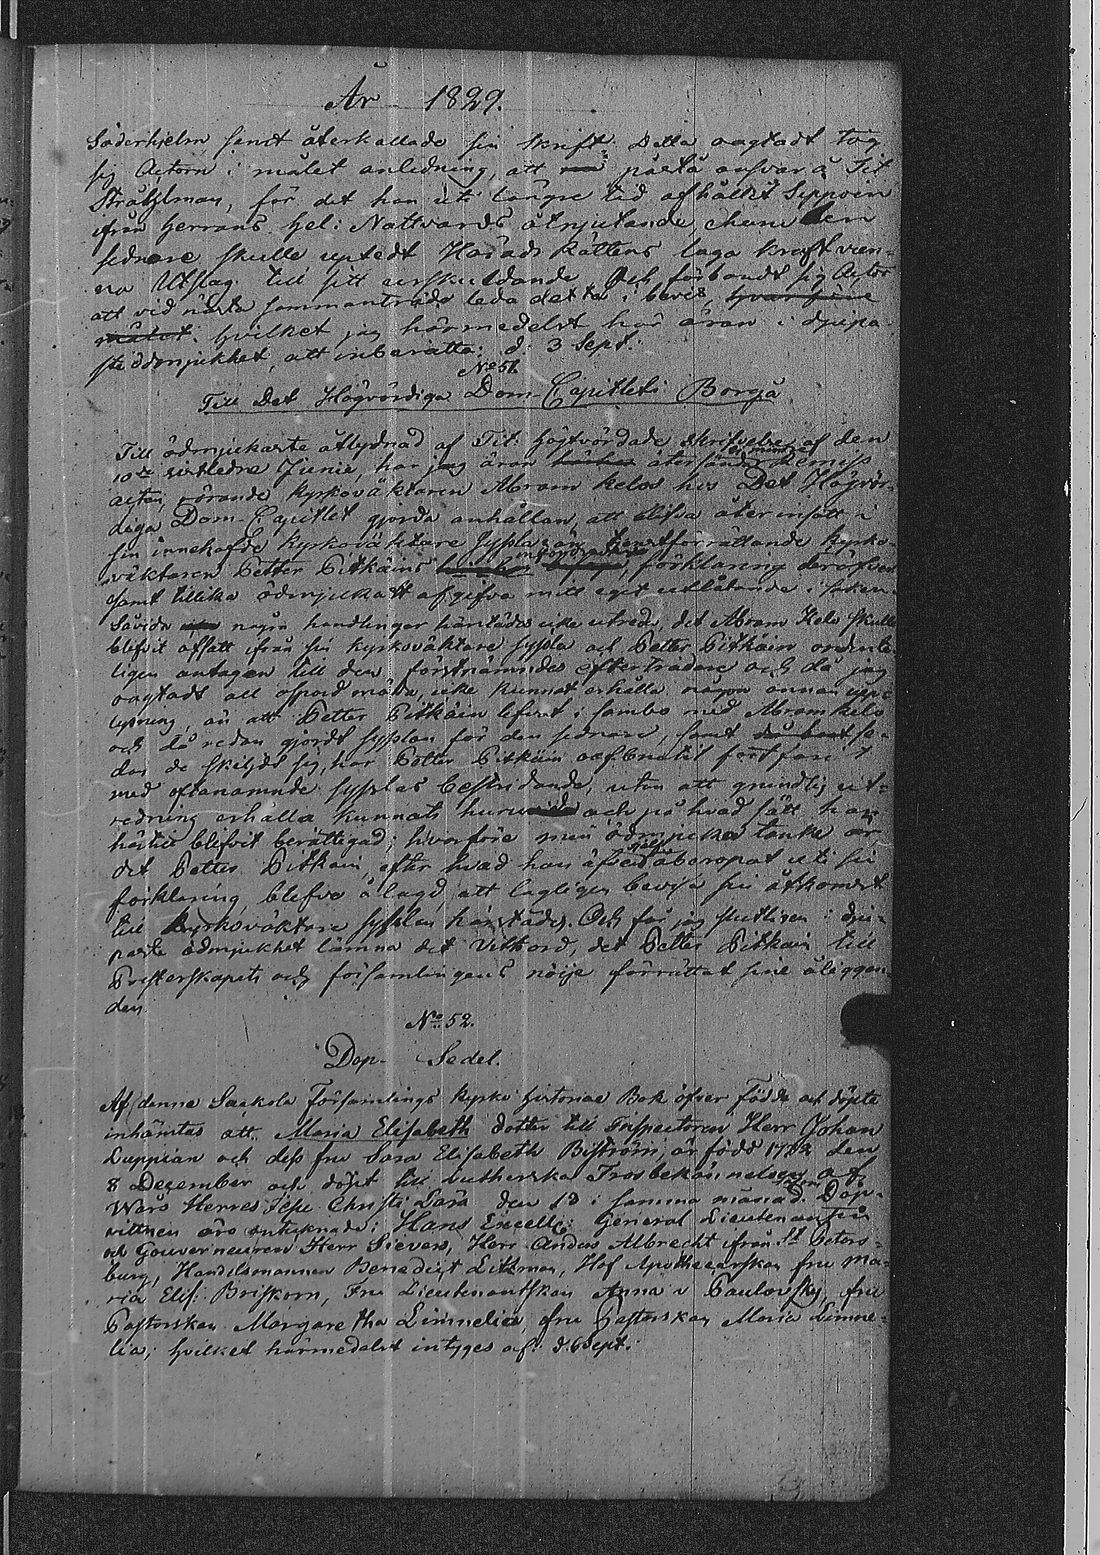 År 1829.
Söderhjelm samt återkallade sin skrift. Detta oagtadt tog
sig Actorn i målet anledning, att påstå ansvar å Tit
Stråhlman, för det han uti längre tid afhållit Sipponen
ifrån Herrans Hel: Nattvards åtnjutande, ehuru den
sednare skulle uptedt Härads Rättens laga kraft vun-
na Utslag till sitt urskuldande. Och förbandt sig Actor
att vid nästa sammanträde leda detta i bevis,
hvilket jag härmedelst har äran i djupa-
ste ödmjukhet, att inberätta. d. 3 Sept.
No 51.
Till Det Högvördiga Dom-Capitlet i Borgå
Till ödmjukaste åtlydnad af Tit: Högtvördade skrifvelse af den
10de sistledne Junii, har jag äran återsända Remiss
acten, rörande kyrkoväktaren Abram Kelas hos Det Högvör-
diga Dom-Capitlet gjorda anhållan, att blifva återinsatt i
sin innehafde kyrkoväktare syssla, än tjenstförrättande kyrko-
väktaren Petter Pitkäins förklaring deröfver
samt tillika ödmjukast afgifva mitt eget utlåtande i saken.
Såvida några handlingar härstädes icke utreda, det Abram Kelas skulle
blifvit afsatt ifrån sin kyrkoväktare syssla och Petter Pitkäin ordent-
ligen antagen till den förstnämndes efterträdare och då jag
oagtadt all ospard möda, icke kunnat erhålla någon annan upp-
lysning, än att Petter Pitkäin lefvat i sambo med Abram Kelas
och då redan gjordt sysslan för den sednare, samt se-
dan de skiljdt sig, har Petter Pitkäin oafbrutit fortfarit
med ofvannämnde sysslas bestridande, utan att grundlig ut-
redning erhålla kunnats huru och på hvad sätt han
härtill blifvit berättigad; hvarföre min ödmjuka tanke är
det Petter Pitkäin efter hvad han sjelf åberopat uti sin
förklaring, blefve ålagd, att lagligen bevisa sin åtkomst
till Kyrkoväktare sysslan härstädes. Och får jag slutligen i dju-
paste ödmjukhet lämna det Vittord, det Petter Pitkäin till
Presterskapets och församlingens nöije förrättat sine åliggan-
den.
No 52.
Dop- Sedel.
Af denna Sackola Församlings Kyrko Historiae Bok öfver födde och döpte
inhämtas att Maria Elisabeth dotter till Inspectoren Herr Johan
Luppian och dess fru Sara Elisabeth Biström, är född 1782 den
8 December och döpt till Lutherska Trosbekännelsen af
Wårs Herres Jesu Christi Lära den 18 i samma månad. Dop-
vittnen äro antecknade: Hans Excelle: General Lieutenanten
och Gouverneuren Herr Sievers, Herr Anders Albrecht ifrån St Peters-
burg, Handelsmannen Benedict Littman, Hof Apothecarskan fru Ma-
ria Elis: Briskorn, Fru Lieutenantskan Anna v Paulovsky, fru
Pastorskan Margaretha Limnelia, fru Pastorskan Maria Limne-
lia; hvilket härmedelst intygas af: d. 6 Sept.